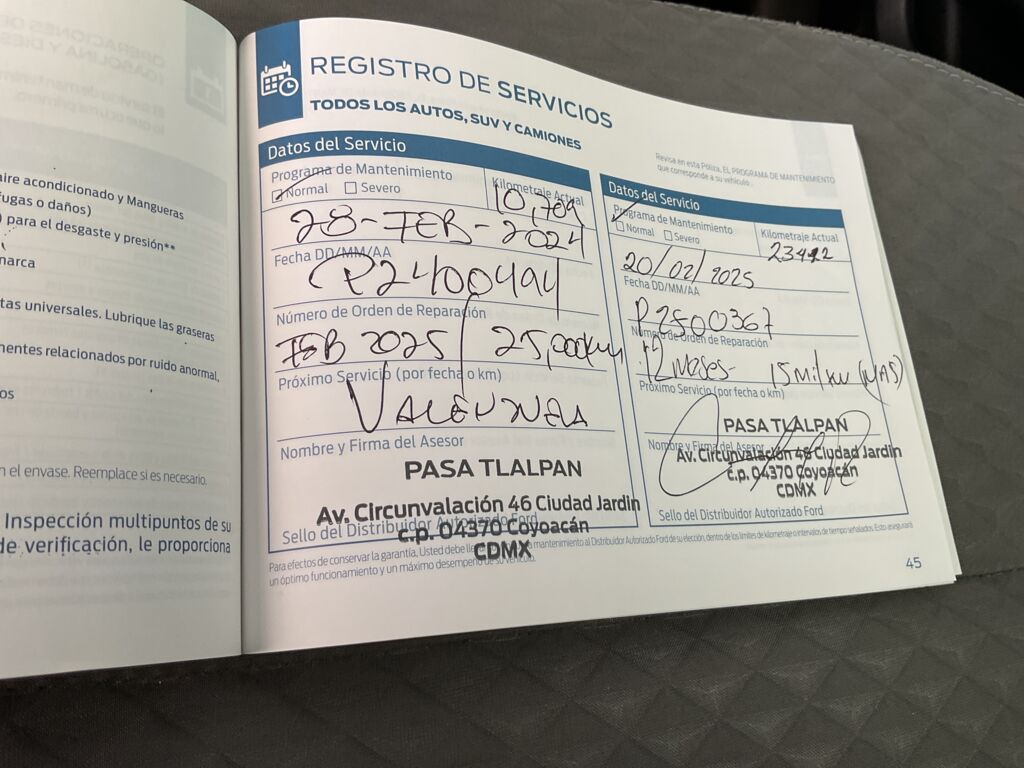 aire acondicionado y Mangueras
fugas o daños)
) para el desgaste y presión**
marca
tas universales. Lubrique las graseras
nentes relacionados por ruido anormal,
os
n el envase. Reemplace si es necesario.
Inspección multipuntos de su
de verificación, le proporciona
REGISTRO DE SERVICIOS
TODOS LOS AUTOS, SUV Y CAMIONES
Datos del Servicio
Programa de Mantenimiento
Normal Severo
Kilometraje Actual
10,709
28-FEB-2024
Fecha DD/MM/AA
P2400494
Número de Orden de Reparación
FEB 2025 / 25,000km
Próximo Servicio (por fecha o km)
Nombre y Firma del Asesor
PASA TLALPAN
Av. Circunvalación 46 Ciudad Jardin
c.p. 04370 Coyoacán
CDMX
Sello del Distribuidor Autorizado Ford
Para efectos de conservar la garantía, Usted debe mantenimiento al Distribuidor Autorizado Ford de su elección, dentro de los límites de kilometraje o intervalos de tiempo señalados. Esto asegurará
un óptimo funcionamiento y un máximo desempeño de su vehículo.
Revisa en esta Póliza, EL PROGRAMA DE MANTENIMIENTO
que corresponde a su vehículo.
Datos del Servicio
Programa de Mantenimiento
Normal Severo
Kilometraje Actual
20/02/2025
Fecha DD/MM/AA
P2500367
Número de Orden de Reparación
12 meses- 15 mil km (MAS)
Próximo Servicio (por fecha o km)
Nombre y Firma del Asesor
PASA TLALPAN
Av. Circunvalación 46 Ciudad Jardin
c.p. 04370 Coyoacán
CDMX
Sello del Distribuidor Autorizado Ford
45